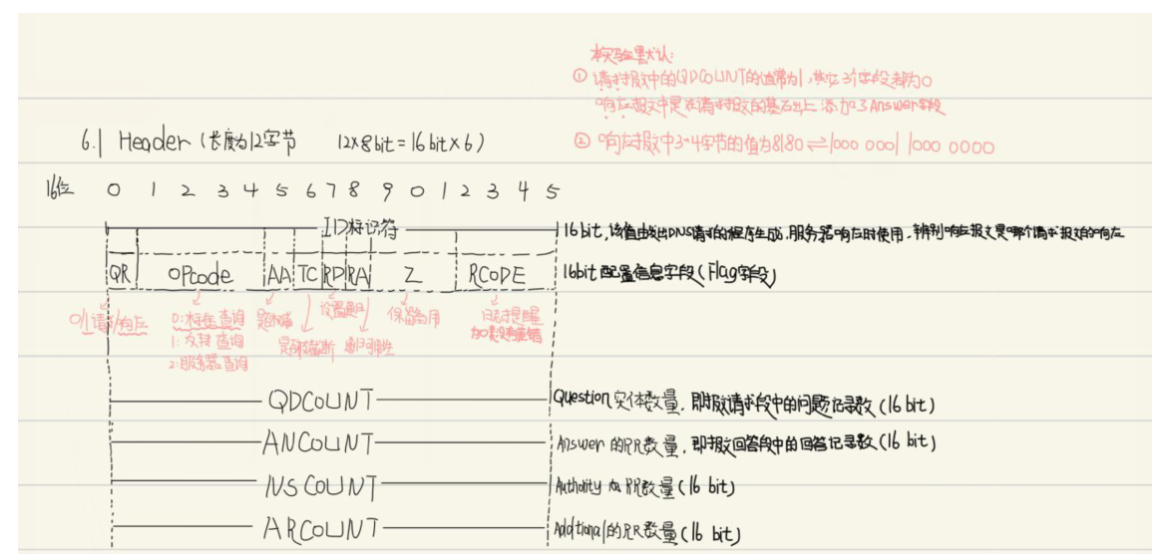 本实验默认:
① 请求报文中的QDCOUNT的值常为1,其它3个字段都为0
响应报文中是在请求报文的基础上添加了Answer字段
② 响应报文中3~4字节的值为8180⇌1000 0001 1000 0000
6.1 Header (长度为12字节 12×8bit=16bit×6)
16位 0 1 2 3 4 5 6 7 8 9 0 1 2 3 4 5
ID标识符 16bit,该值由发出DNS请求的程序生成,服务器响应时使用,辨别响应报文是哪个请求报文的响应
QR OPcode AA TC RD RA Z RCODE 16bit配置信息字段(Flag字段)
0/1请求/响应 0:标准查询 是否 设置递归 保留备用
1:反转查询 是否截断
2:服务器查询
QDCOUNT Question实体数量,即报文请求段中的问题记录数(16 bit)
ANCOUNT Answer的RR数量,即报文回答段中的回答记录数(16 bit)
NSCOUNT Authority的RR数量(16 bit)
ARCOUNT Additional的RR数量(16 bit)